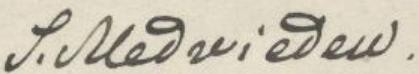 S. Medwiedew.